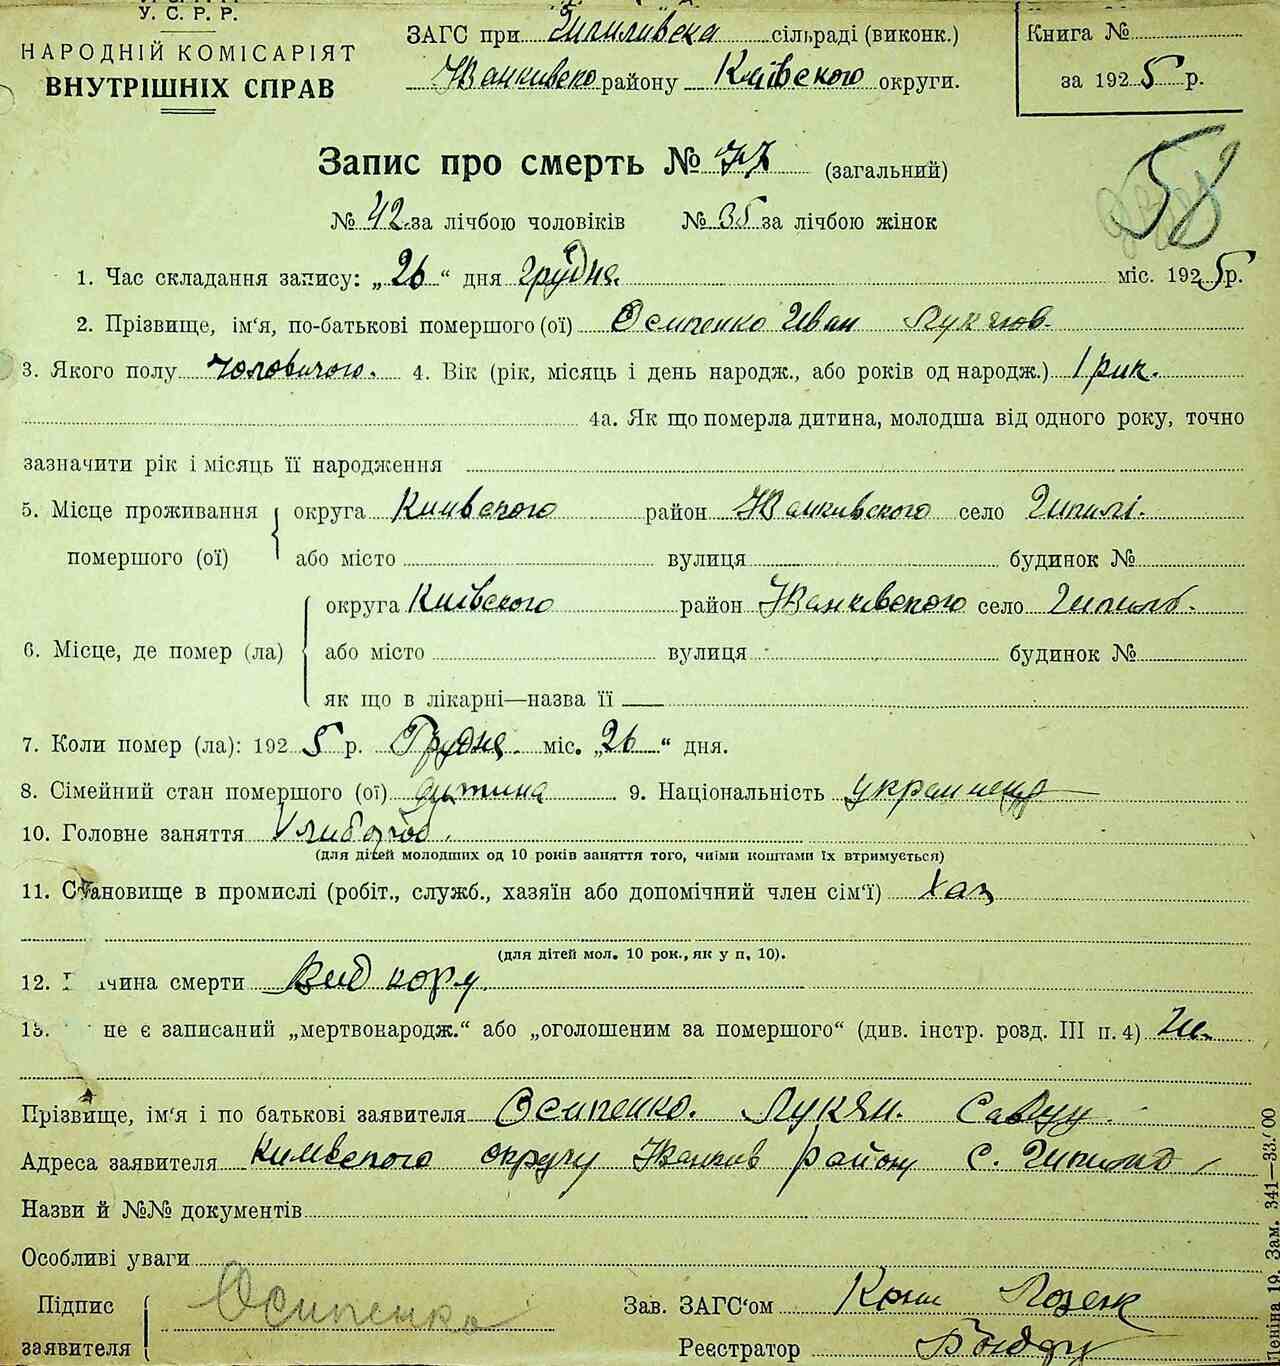 У. С. Р. Р.
НАРОДНІЙ КОМІСАРІЯТ
ВНУТРІШНІХ СПРАВ
ЗАГС при сільраді (виконк.)
району Київського округи.
Книга №
за 1925 р.
Запис про смерть № 77 (загальний)
58
№ 42 за лічбою чоловіків № 35 за лічбою жінок
1. Час складання запису: „26“ дня грудня міс. 1925 р.
2. Прізвище, ім'я, по-батькові помершого (ої) Осипенко Иван Лукянов.
3. Якого полу чоловичого. 4. Вік (рік, місяць і день народж., або років од народж.) 1 рик.
4а. Як що померла дитина, молодша від одного року, точно
зазначити рік і місяць її народження
5. Місце проживання помершого (ої) округа Киивского район Иванкивского село
або місто вулиця будинок №
6. Місце, де помер (ла) округа Киівского район Иванкивского село
або місто вулиця будинок №
як що в лікарні—назва її
7. Коли помер (ла): 1925 р. Грудня міс. „26“ дня.
8. Сімейний стан помершого (ої) дитина 9. Національність
10. Головне заняття
(для дітей молодших од 10 років заняття того, чиїми коштами їх втримується)
11. Становище в промислі (робіт., служб., хазяїн або допомічний член сім'ї) Хаз
(для дітей мол. 10 рок., як у п. 10).
12. чина смерти Вид кору.
13. не є записаний „мертвонародж.“ або „оголошеним за помершого“ (див. інстр. розд. III п. 4) Ни.
Прізвище, ім'я і по батькові заявителя Осипенко. Лукян.
Адреса заявителя Киивского округу Иванкив району с.
Назви й №№ документів
Особливі уваги
Підпис заявителя Осипенко
Зав. ЗАГС'ом
Реєстратор
Леніна 19. Зам. 341—33.